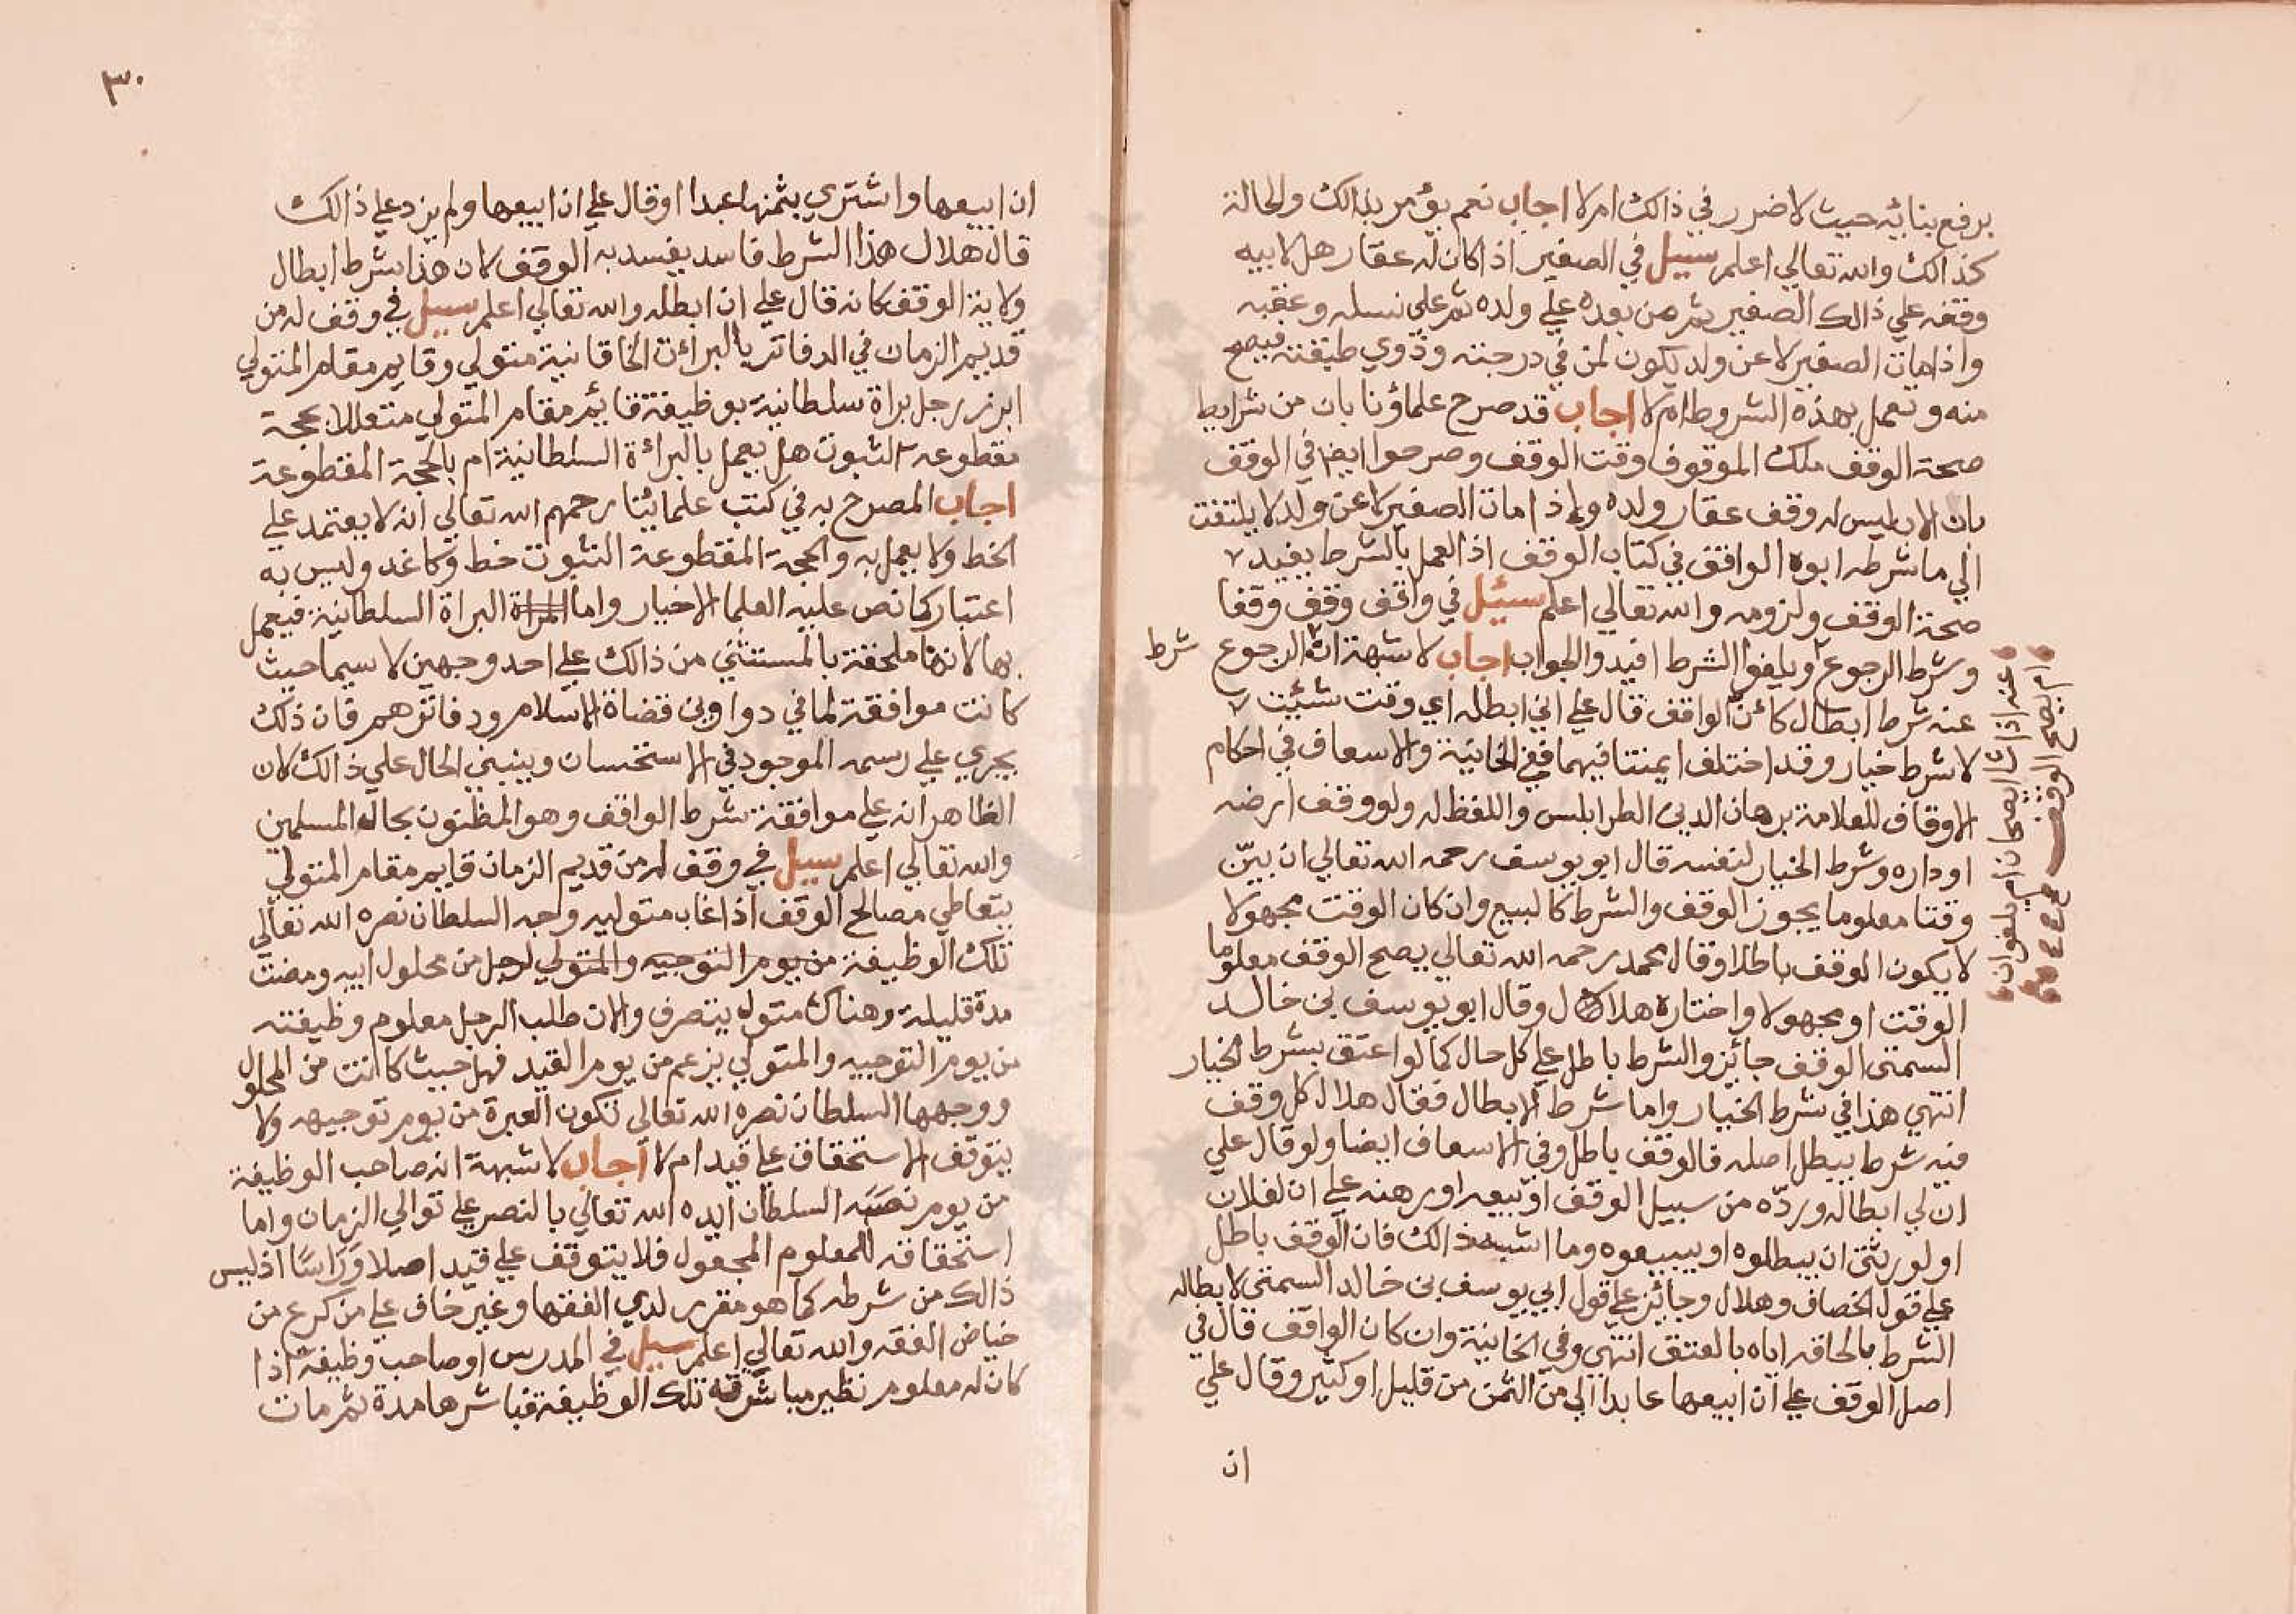 برفع بنائه حيث لا ضرر في ذالك ام لا اجاب نعم يؤمر بذالك والحالة
كذالك والله تعالي اعلم سييل في الصغير اذا كان له عقار هل لابيه
وقفه علي ذالك الصغير ثم من بعده علي ولده ثم علي نسله وعقبه
واذا مات الصغير لا عن ولد يكون لمن في درجته وذوي طبقته فيصح
منه ونعمل بهذه الشروط ام لا اجاب قد صرح علماؤنا بان من شرايط
صحة الوقف ملك الموقوف وقت الوقف وصرحوا ايضا في الوقف
بان الاب ليس له وقف عقار ولده واذا مات الصغير لا عن ولد لا يلتفت
الي ما شرطه ابوه الواقف في كتاب الوقف اذ العمل بالشرط يفيد
صحة الوقف ولزومه والله تعالي اعلم سيئل في واقف وقف وقفا
وشرط الرجوع ويلغوا الشرط افيد والجواب اجاب لا شبهة ان الرجوع شرط
عنه شرط ابطال كأنّ الواقف قال علي اني ابطله اي وقت شئيت
لا شرط خيار وقد اختلف ايمتنا فيهما ففي الخانية والاسعاف في احكام
الاوقاف للعلامة برهان الدين الطرابلس واللفظ له ولو وقف ارضه
او داره وشرط الخيار لنفسه قال ابو يوسف رحمه الله تعالي ان بيّن
وقتا معلوما يجوز الوقف والشرط كالبيع وان كان الوقت مجهولا
لا يكون الوقف باطلا وقال محمد رحمه الله تعالي يصح الوقف معلوما
الوقت او مجهولا واختاره هلال وقال ابو يوسف بن خالد
السمتي الوقف جائز والشرط باطل علي كل حال كما لو اعتق بشرط الخيار
انتهي هذا في شرط الخيار واما شرط الابطال فقال هلال كل وقف
فيه شرط يبطل اصله فالوقف باطل وفي الاسعاف ايضا ولو قال علي
ان لي ابطاله وردّه من سبيل الوقف او بيعه او رهنه علي ان لفلان
او لورثتي ان يبطلوه او يبيعوه وما اشبه ذالك فان الوقف باطل
علي قول الخصاف وهلال وجائز علي قول ابي يوسف بن خالد السمتي لابطاله
الشرط بالحاقه اياه بالعتق انتهي وفي الخانية وان كان الواقف قال في
اصل الوقف علي ان ابيعها بما بدا لي من الثمن من قليل او كثير وقال علي
ان
عنه اذا ام لا يصحان ام يلغوان
ام يصح الوقف
٣٠
ان ابيعها واشتري بثمنها عبدا او قال علي ان ابيعها ولم يزد علي ذالك
قال هلال هذا الشرط فاسد يفسد به الوقف لان هذا شرط ابطال
ولاية الوقف كانه قال علي ان ابطله والله تعالي اعلم سييل في وقف له من
قديم الزمان في الدفاتر بالبرائت الخاقانية متولي وقايم مقام المتولي
ابرز رجل براة سلطانية بوظيفة قايم مقام المتولي متعللا بحجة
مقطوعة الثبوت هل يعمل بالبرائة السلطانية ام بالحجة المقطوعة
اجاب المصرح به في كتب علمائنا رحمهم الله تعالي انه لا يعتمد علي
الخط ولا يعمل به والحجة المقطوعة الثبوت خط وكاغد وليس به
اعتبار كما نص عليه العلما الاخيار واما البراة السلطانية فيعمل
بها لانها ملحقة بالمستثني من ذالك علي احد وجهين لا سيما حيث
كانت موافقة لما في دواوين قضاة الاسلام ودفاترهم فان ذلك
يجري علي رسمه الموجود في الاستحسان ويبنيني الحال علي ذالك لان
الظاهر انه علي موافقة شرط الواقف وهو المظنون بحال المسلمين
والله تعالي اعلم سييل في وقف له من قديم الزمان قايم مقام المتولي
يتعاطي مصالح الوقف اذا غاب متوليه وجه السلطان نصره الله تعالي
تلك الوظيفة من يوم التوجيه والمتولي لرجل من محلول ابيه ومضت
مدة قليلة وهناك متولي يتصرف والان طلب الرجل معلوم وظيفته
من يوم التوجيه والمتولي يزعم من يوم القيد فهل حيث كانت من المحلول
ووجهها السلطان نصره الله تعالي تكون العبرة من يوم توجيهه ولا
يتوقف الاستحقاق علي قيد ام لا اجاب لا شبهة انه صاحب الوظيفة
من يوم نصبه السلطان ايده الله تعالي بالنصر علي توالي الزمان واما
استحقاقه للمعلوم المجعول فلا يتوقف علي قيد اصلا وراسًا اذ ليس
ذالك من شرطه كما هو مقرر لدي الفقها وغير خاف علي من كرع من
حياض الفقه والله تعالي اعلم سييل في المدرس او صاحب وظيفة اذا
كان له معلوم نظير مباشرته تلك الوظيفة فباشرها مدة ثم مات